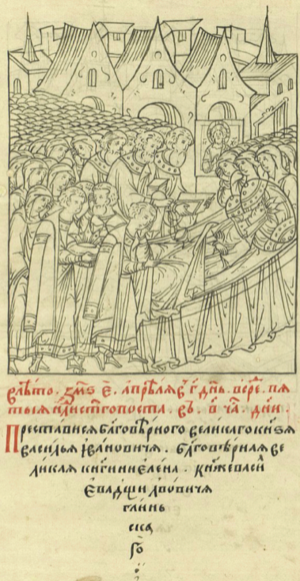 влѣто . ҂зм҃ѕ е҃. апрѣля в҃ г҃ днь . всре҃ . пя
тыя н҃дли ст҃го поста . въ . в҃ ча҃ . дни .
Преставися благовѣрнаго великаго кн҃зя
василья ивановичя . благовѣрная ве
ликая кнгини елена . княже васи
ева дщи лвовичя
глинь
ска
го